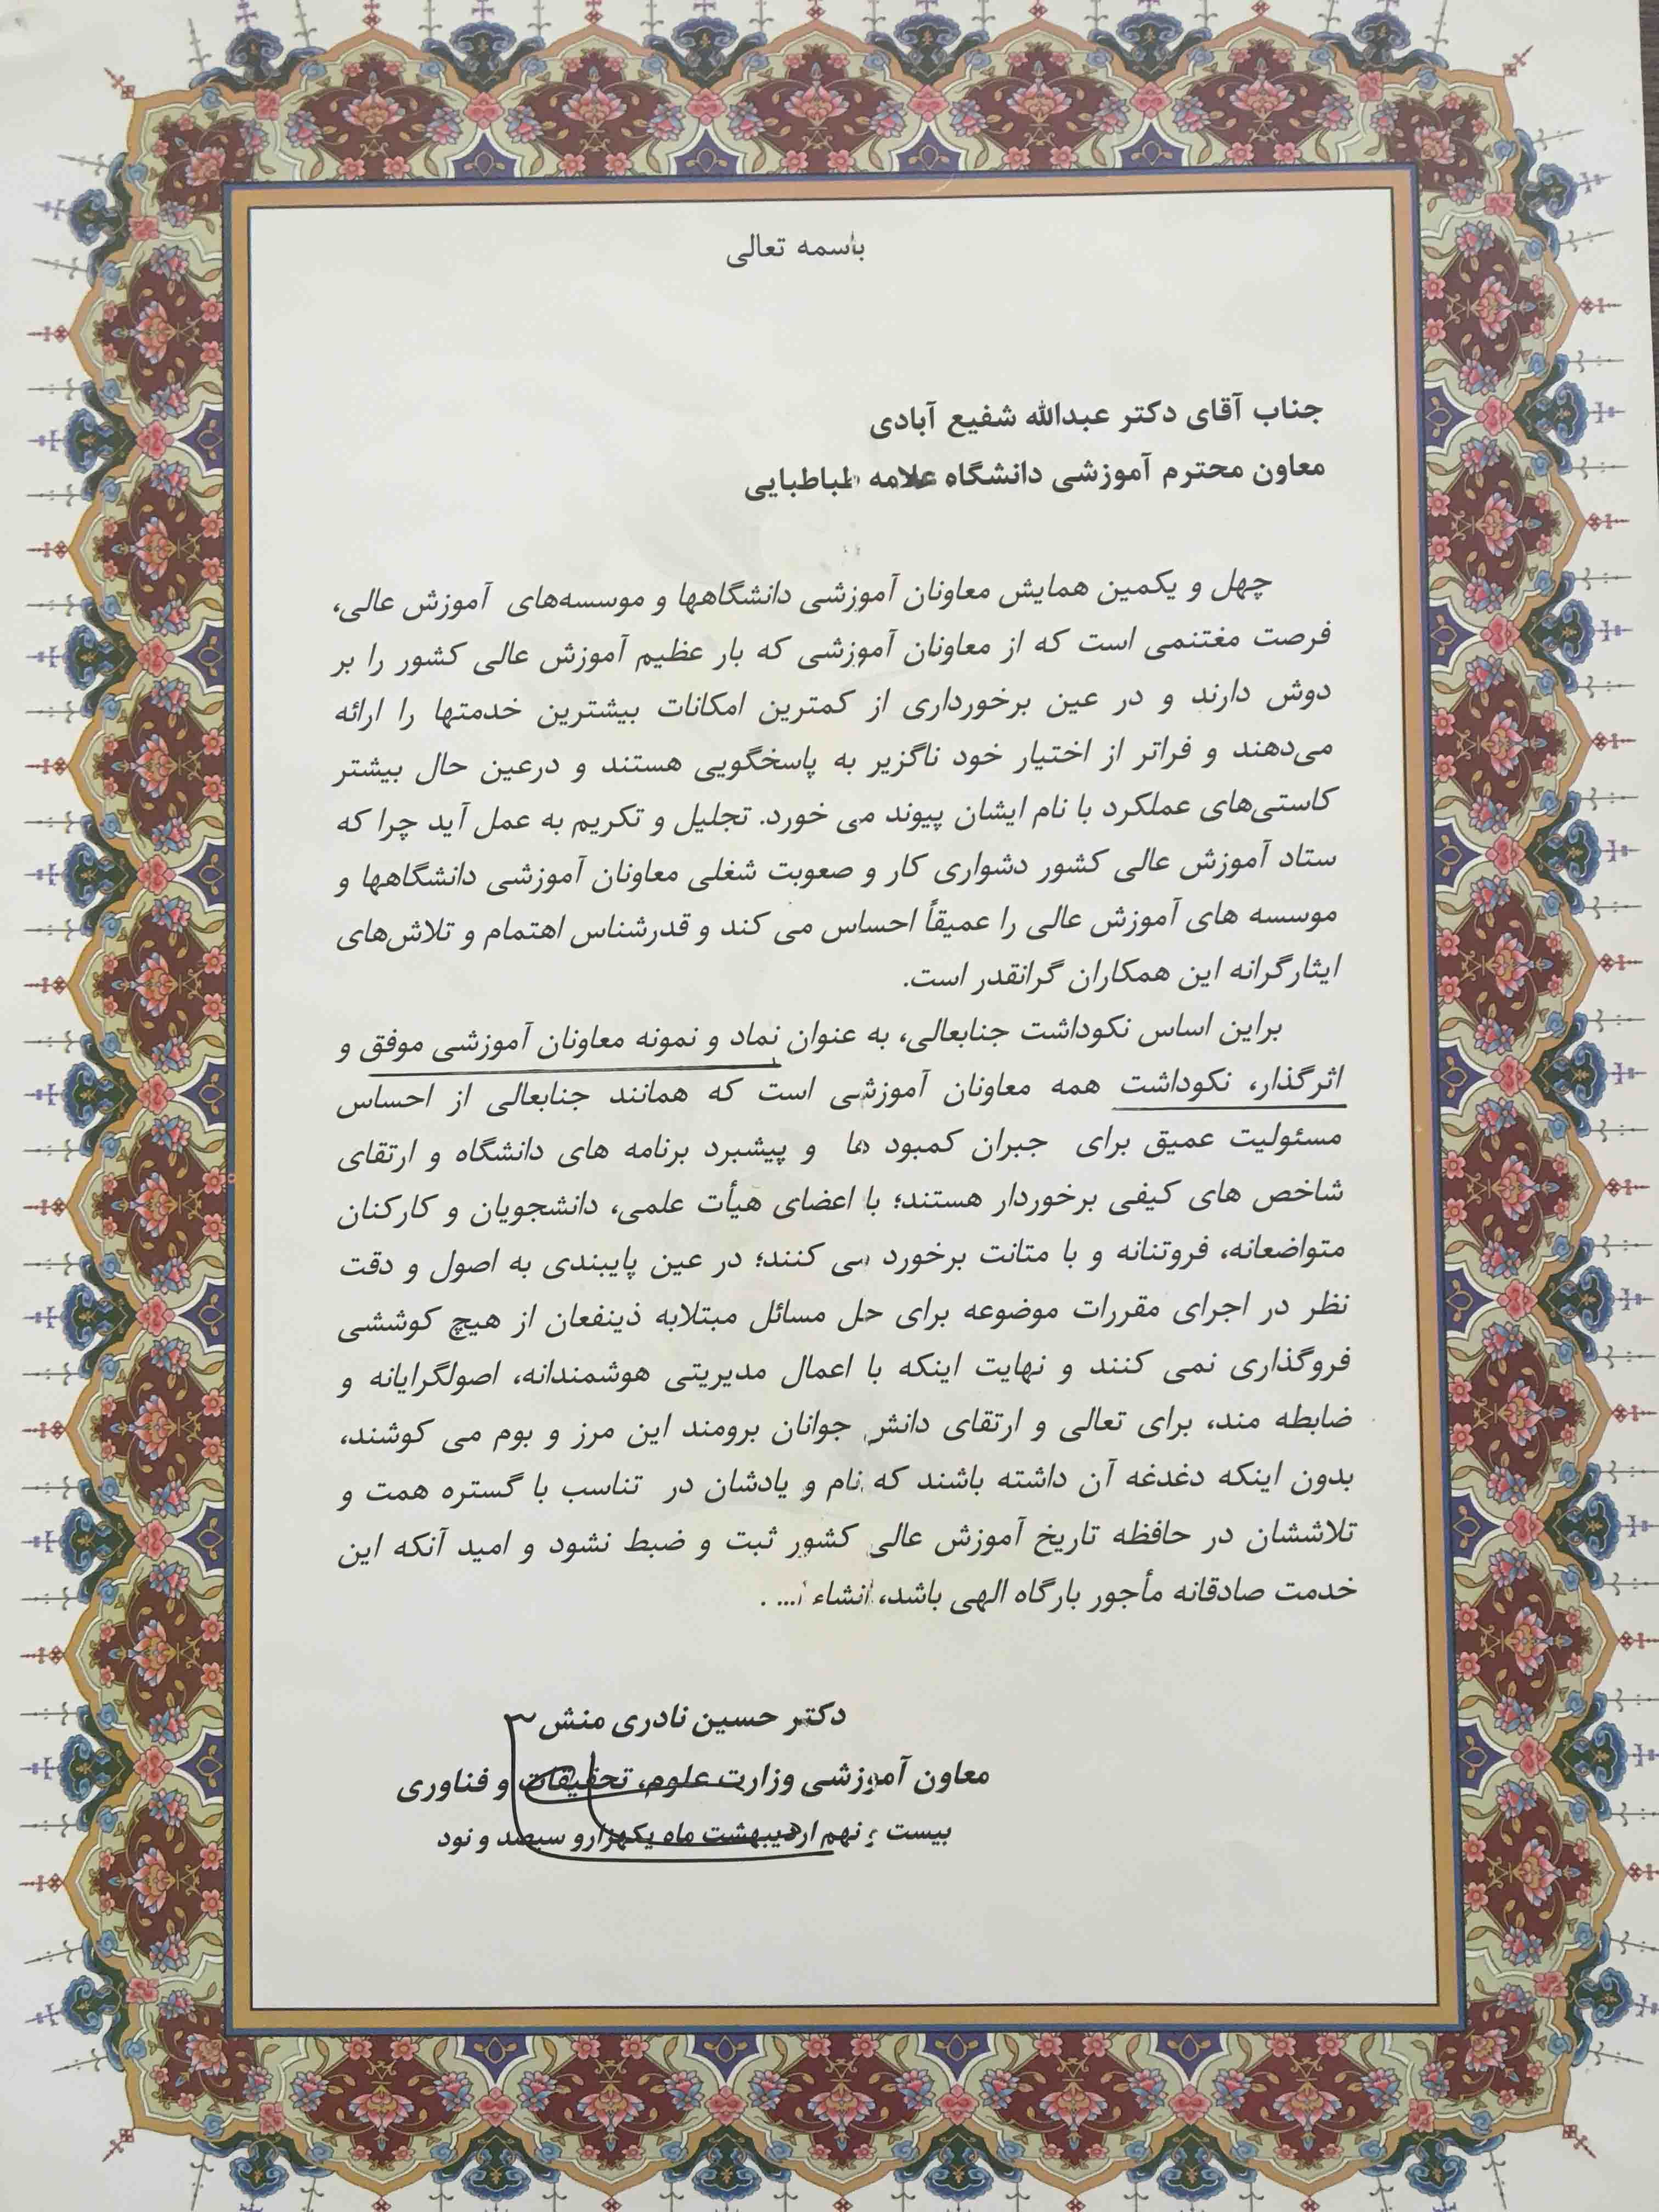 باسمه تعالی
جناب آقای دکتر عبدالله شفیع آبادی
معاون محترم آموزشی دانشگاه علامه طباطبایی
چهل و یکمین همایش معاونان آموزشی دانشگاهها و موسسه‌های آموزش عالی،
فرصت مغتنمی است که از معاونان آموزشی که بار عظیم آموزش عالی کشور را بر
دوش دارند و در عین برخورداری از کمترین امکانات بیشترین خدمتها را ارائه
می‌دهند و فراتر از اختیار خود ناگزیر به پاسخگویی هستند و درعین حال بیشتر
کاستی‌های عملکرد با نام ایشان پیوند می خورد. تجلیل و تکریم به عمل آید چرا که
ستاد آموزش عالی کشور دشواری کار و صعوبت شغلی معاونان آموزشی دانشگاهها و
موسسه های آموزش عالی را عمیقاً احساس می کند و قدرشناس اهتمام و تلاش‌های
ایثارگرانه این همکاران گرانقدر است.
براین اساس نکوداشت جنابعالی، به عنوان نماد و نمونه معاونان آموزشی موفق و
اثرگذار، نکوداشت همه معاونان آموزشی است که همانند جنابعالی از احساس
مسئولیت عمیق برای جبران کمبود ها و پیشبرد برنامه های دانشگاه و ارتقای
شاخص های کیفی برخوردار هستند؛ با اعضای هیأت علمی، دانشجویان و کارکنان
متواضعانه، فروتنانه و با متانت برخورد می کنند؛ در عین پایبندی به اصول و دقت
نظر در اجرای مقررات موضوعه برای حل مسائل مبتلابه ذینفعان از هیچ کوششی
فروگذاری نمی کنند و نهایت اینکه با اعمال مدیریتی هوشمندانه، اصولگرایانه و
ضابطه مند، برای تعالی و ارتقای دانش جوانان برومند این مرز و بوم می کوشند،
بدون اینکه دغدغه آن داشته باشند که نام و یادشان در تناسب با گستره همت و
تلاششان در حافظه تاریخ آموزش عالی کشور ثبت و ضبط نشود و امید آنکه این
خدمت صادقانه مأجور بارگاه الهی باشد، انشاء ا... .
دکتر حسین نادری منش
معاون آموزشی وزارت علوم، تحقیقات و فناوری
بیست و نهم اردیبهشت ماه یکهزارو سیصد و نود